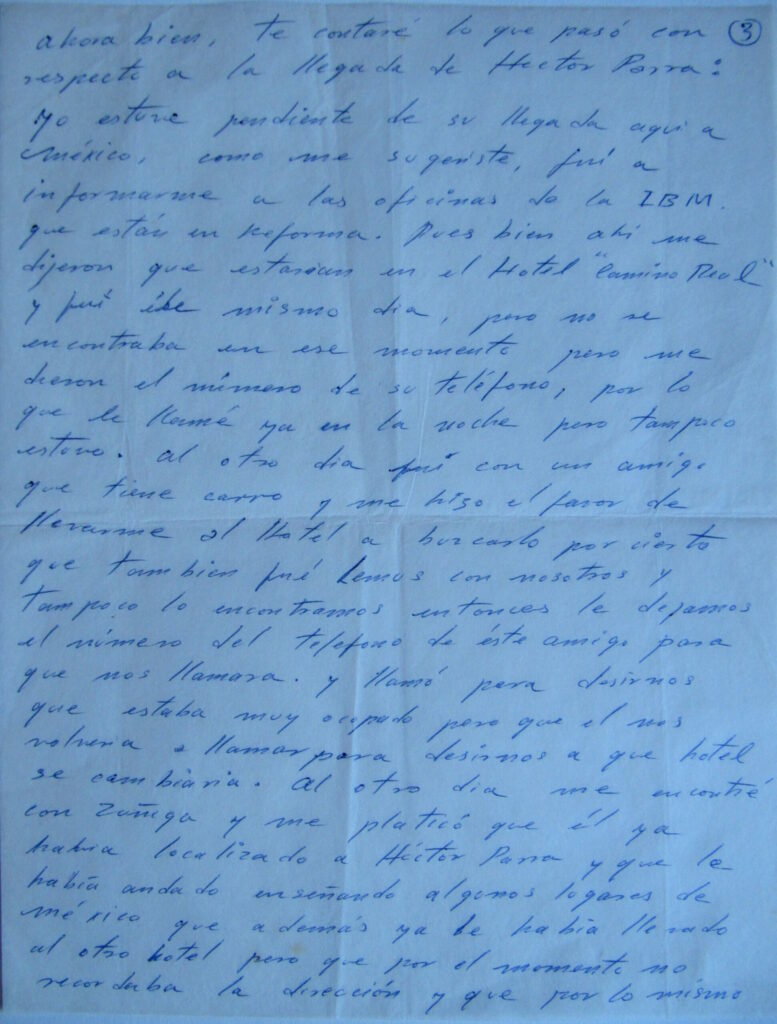 ahora bien, te contaré lo que pasó con ③
respecto a la llegada de Hector Parra:
Yo estuve pendiente de su llegada aqui a
México, como me sugeriste, fuí a
informarme a las oficinas de la IBM.
que están en Reforma. Pues bien ahi me
dijeron que estarian en el Hotel "Camino Real"
y fuí ese mismo dia, pero no se
encontraba en ese momento pero me
dieron el número de su teléfono, por lo
que le llamé ya en la noche pero tampoco
estuvo. Al otro dia fuí con un amigo
que tiene carro y me hizo el favor de
llevarme al Hotel a buscarlo por cierto
que tambien fué Lemus con nosotros y
tampoco lo encontramos entonces le dejamos
el número del telefono de éste amigo para
que nos llamara. y llamó para desirnos
que estaba muy ocupado pero que el nos
volveria a llamar para desirnos a que hotel
se cambiaria. Al otro dia me encontré
con Zúñiga y me platicó que él ya
habia localizado a Héctor Parra y que le
había andado enseñando algunos lugares de
méxico que además ya le había llevado
al otro hotel pero que por el momento no
recordaba la dirección y que por lo mismo